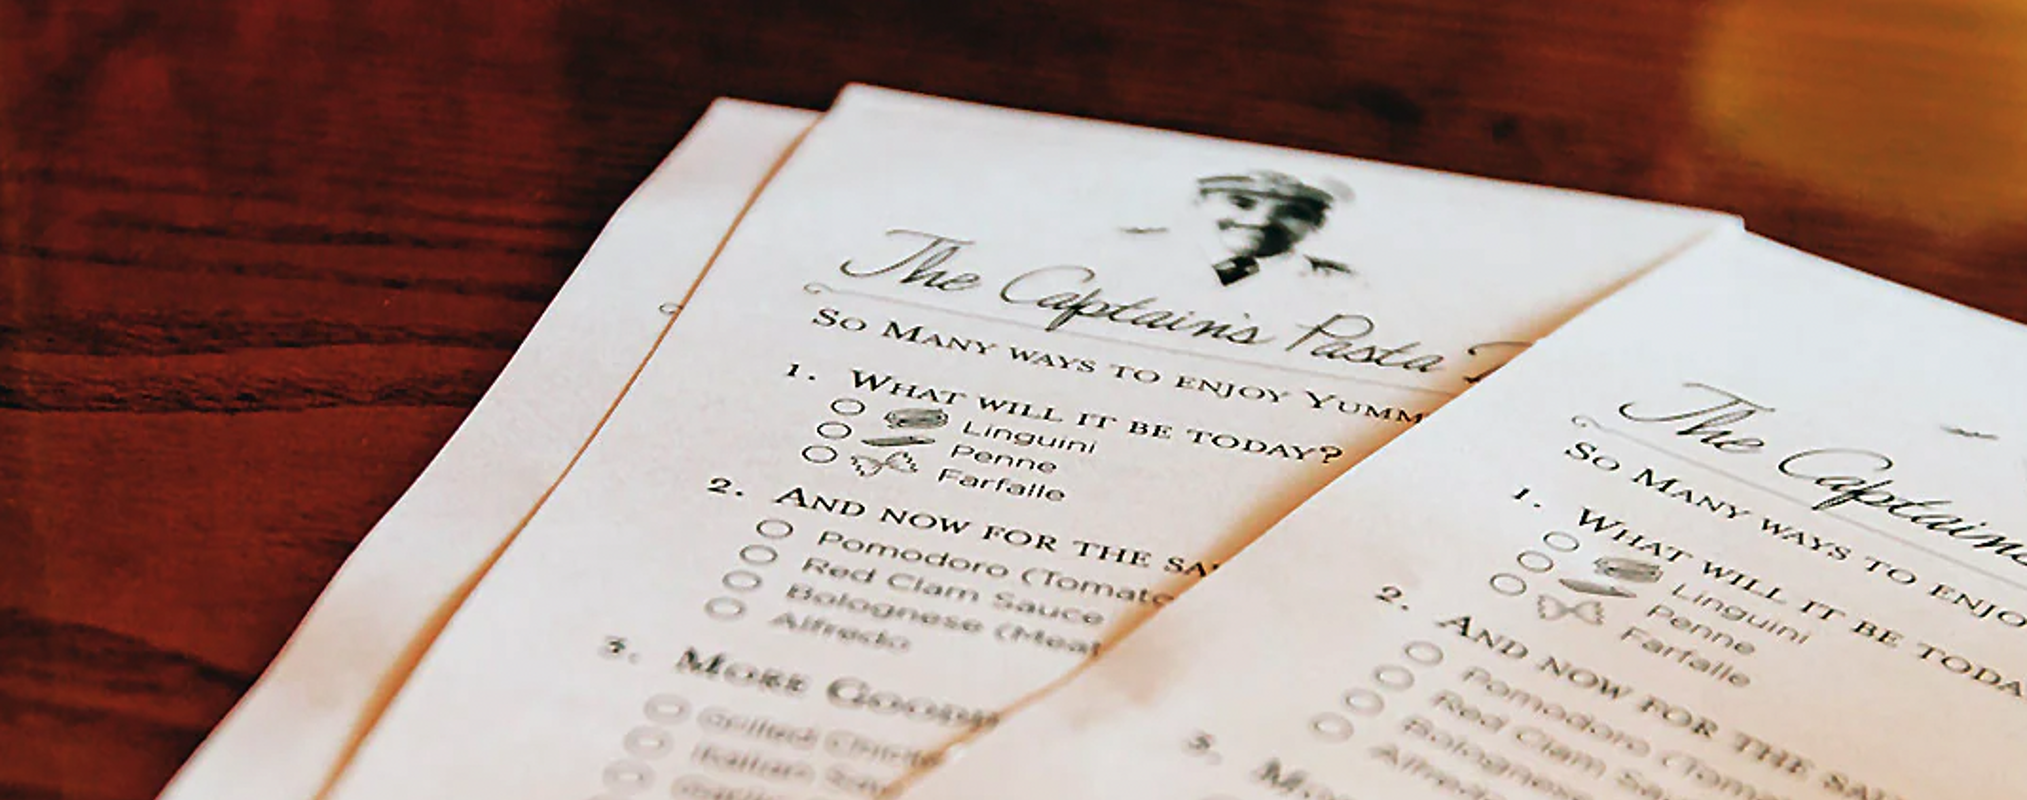 The Captain's Pasta
So Many ways to enjoy Yumm
1. What will it be today?
Linguini
Penne
Farfalle
2. And now for the sau
Pomodoro (Tomato
Red Clam Sauce
Bolognese (Meat
Alfredo
3. More Goods
Grilled Chicke
Italian Sau
The Captain's
So Many ways to enjo
1. What will it be toda
Linguini
Penne
Farfalle
2. And now for the sau
Pomodoro (Tom
Red Clam Sau
Bolognes
Alfred
3. Mo